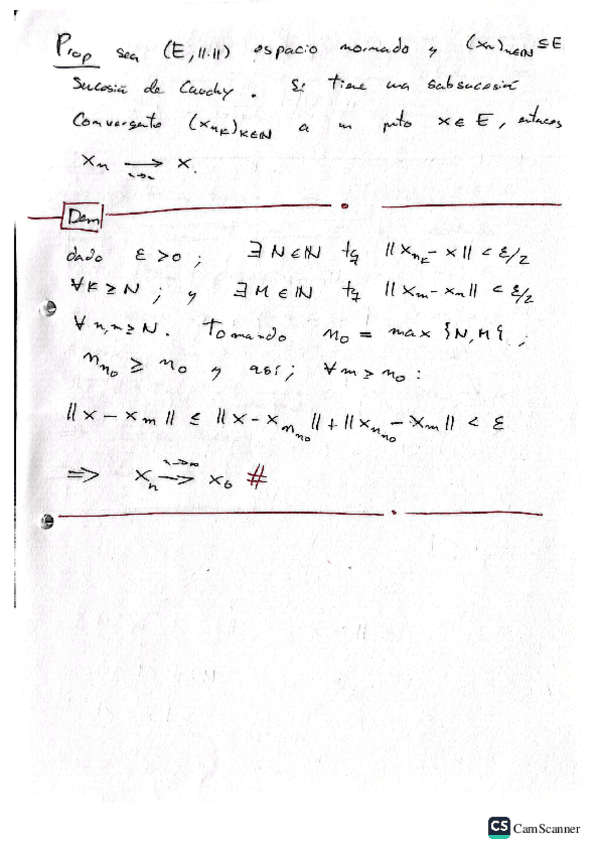 Prop sea (E, ||·||) espacio normado y (xn)n∈ℕ ⊆ E
Sucesión de Cauchy. Si tiene una subsucesión
Convergente (x_{n_k})_{k∈ℕ} a un pnto x ∈ E, entonces
x_n → x.
n→∞
Dem
dado ε > 0; ∃ N ∈ ℕ tq ||x_{n_k} - x|| < ε/2
∀ k ≥ N; y ∃ M ∈ ℕ tq ||x_m - x_n|| < ε/2
∀ n, m ≥ N. Tomando n_0 = max {N, M};
n_{n_0} ≥ n_0 y así; ∀ m ≥ n_0:
||x - x_m|| ≤ ||x - x_{n_{n_0}}|| + ||x_{n_{n_0}} - x_m|| < ε
n→∞
⇒ x_n → x_0 #
CS CamScanner